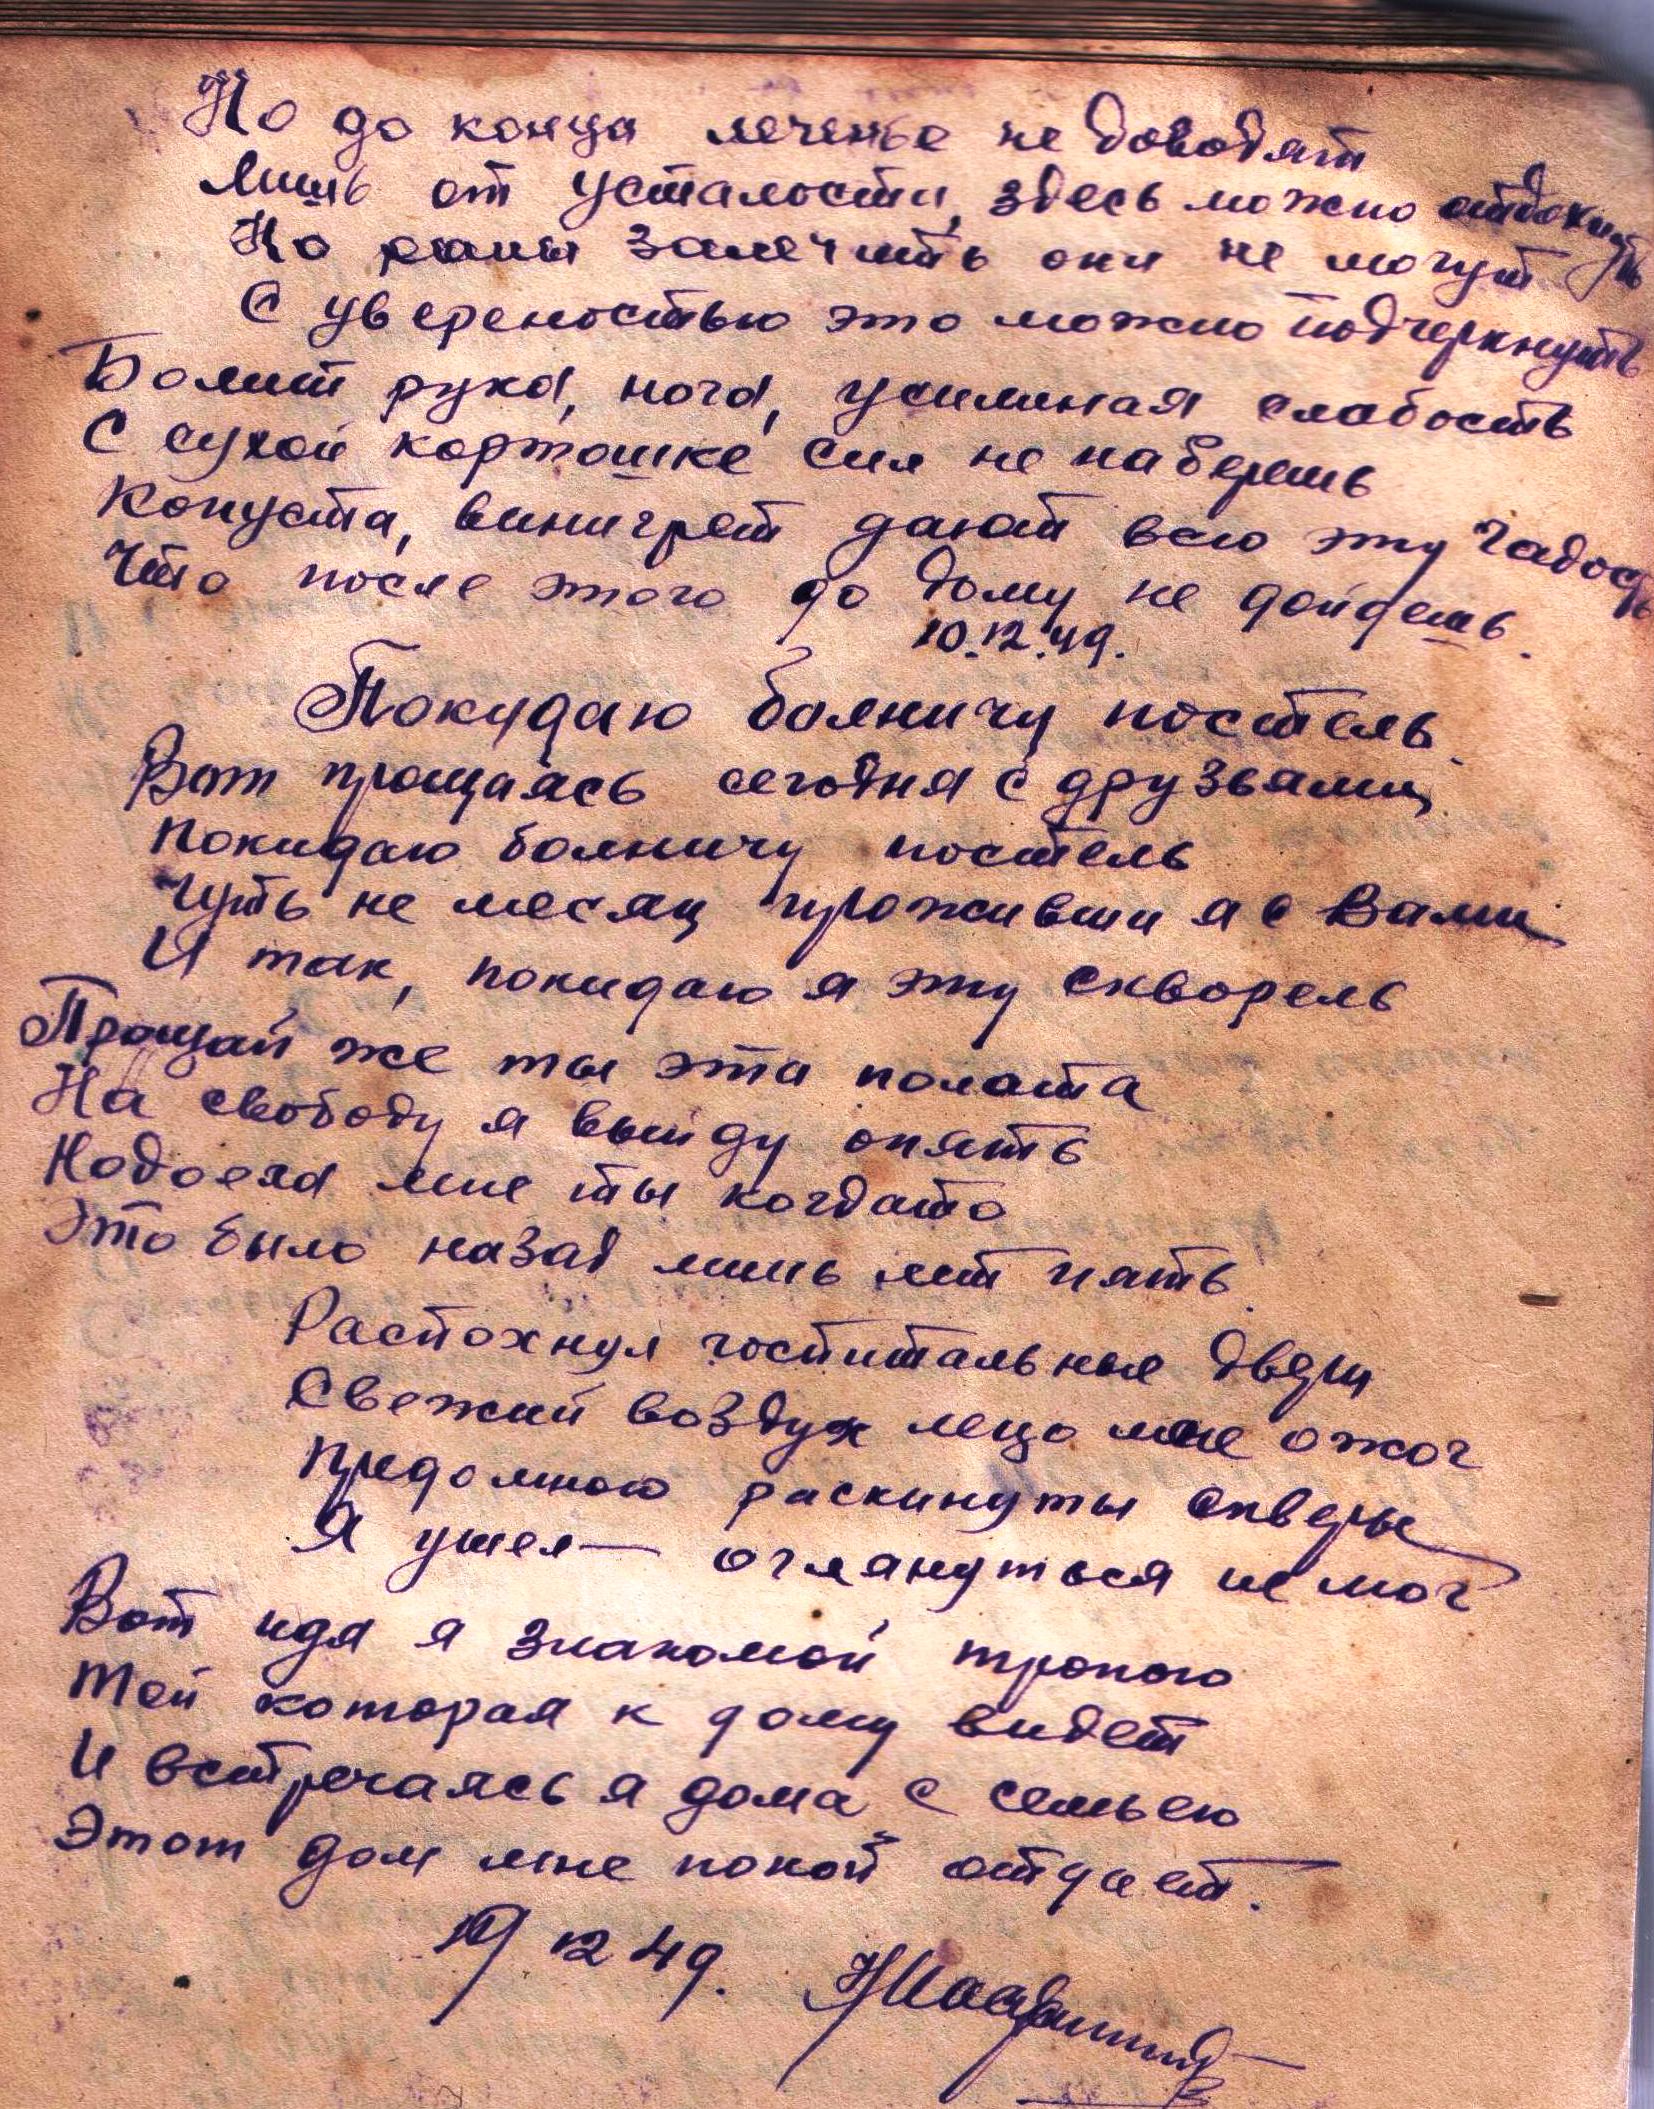 Но до конца леченье не доводят
Лишь от усталости, здесь можно отдохнуть
Но раны залечить они не могут
С увереностью это можно подчеркнуть
Болит рука, нога, усиленая слабость
С сухой кортошке сил не наберешь
Капуста, винигрет дают всю эту гадость
Что после этого до дому не дойдешь.
10.12.49.
Покидаю болничу постель.
Вот прощаясь сегодня с друзьями
Покидаю болничу постель
Чуть не месяц проживши я с Вами
И так, покидаю я эту скворель
Прощай же ты эта полата
На свободу я выйду опять
Надоела мне ты когдато
Это было назад лишь лет пять.
Распохнул госпитальные двери
Свежий воздух лецо мне ожог
Предомною раскинуты скверы
Я ушел — оглянуться не мог
Вот идя я знакомой тропою
Той которая к дому видет
И встречаясь я дома с семьею
Этот дом мне покой отдает.
19 12 49.